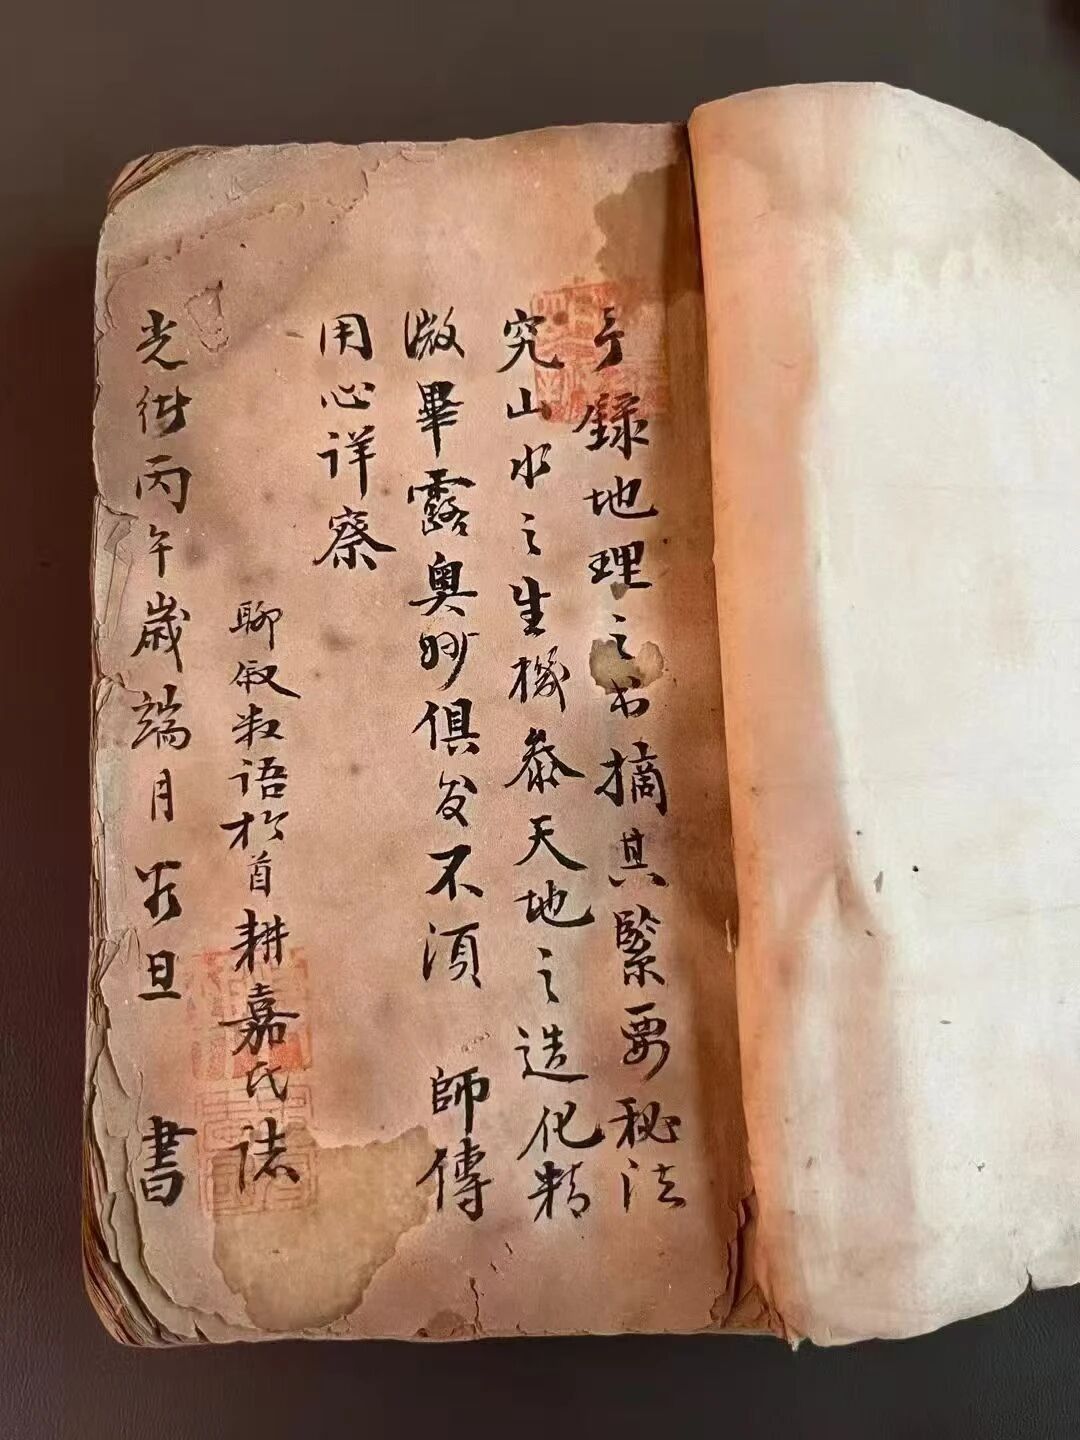 予録地理之书摘其緊要秘法
究山水之生機叅天地之造化精
微畢露奥妙俱发不須 師傳
用心详察
聊叙数語於首耕嘉氏誌
光绪丙午歳端月谷旦 書